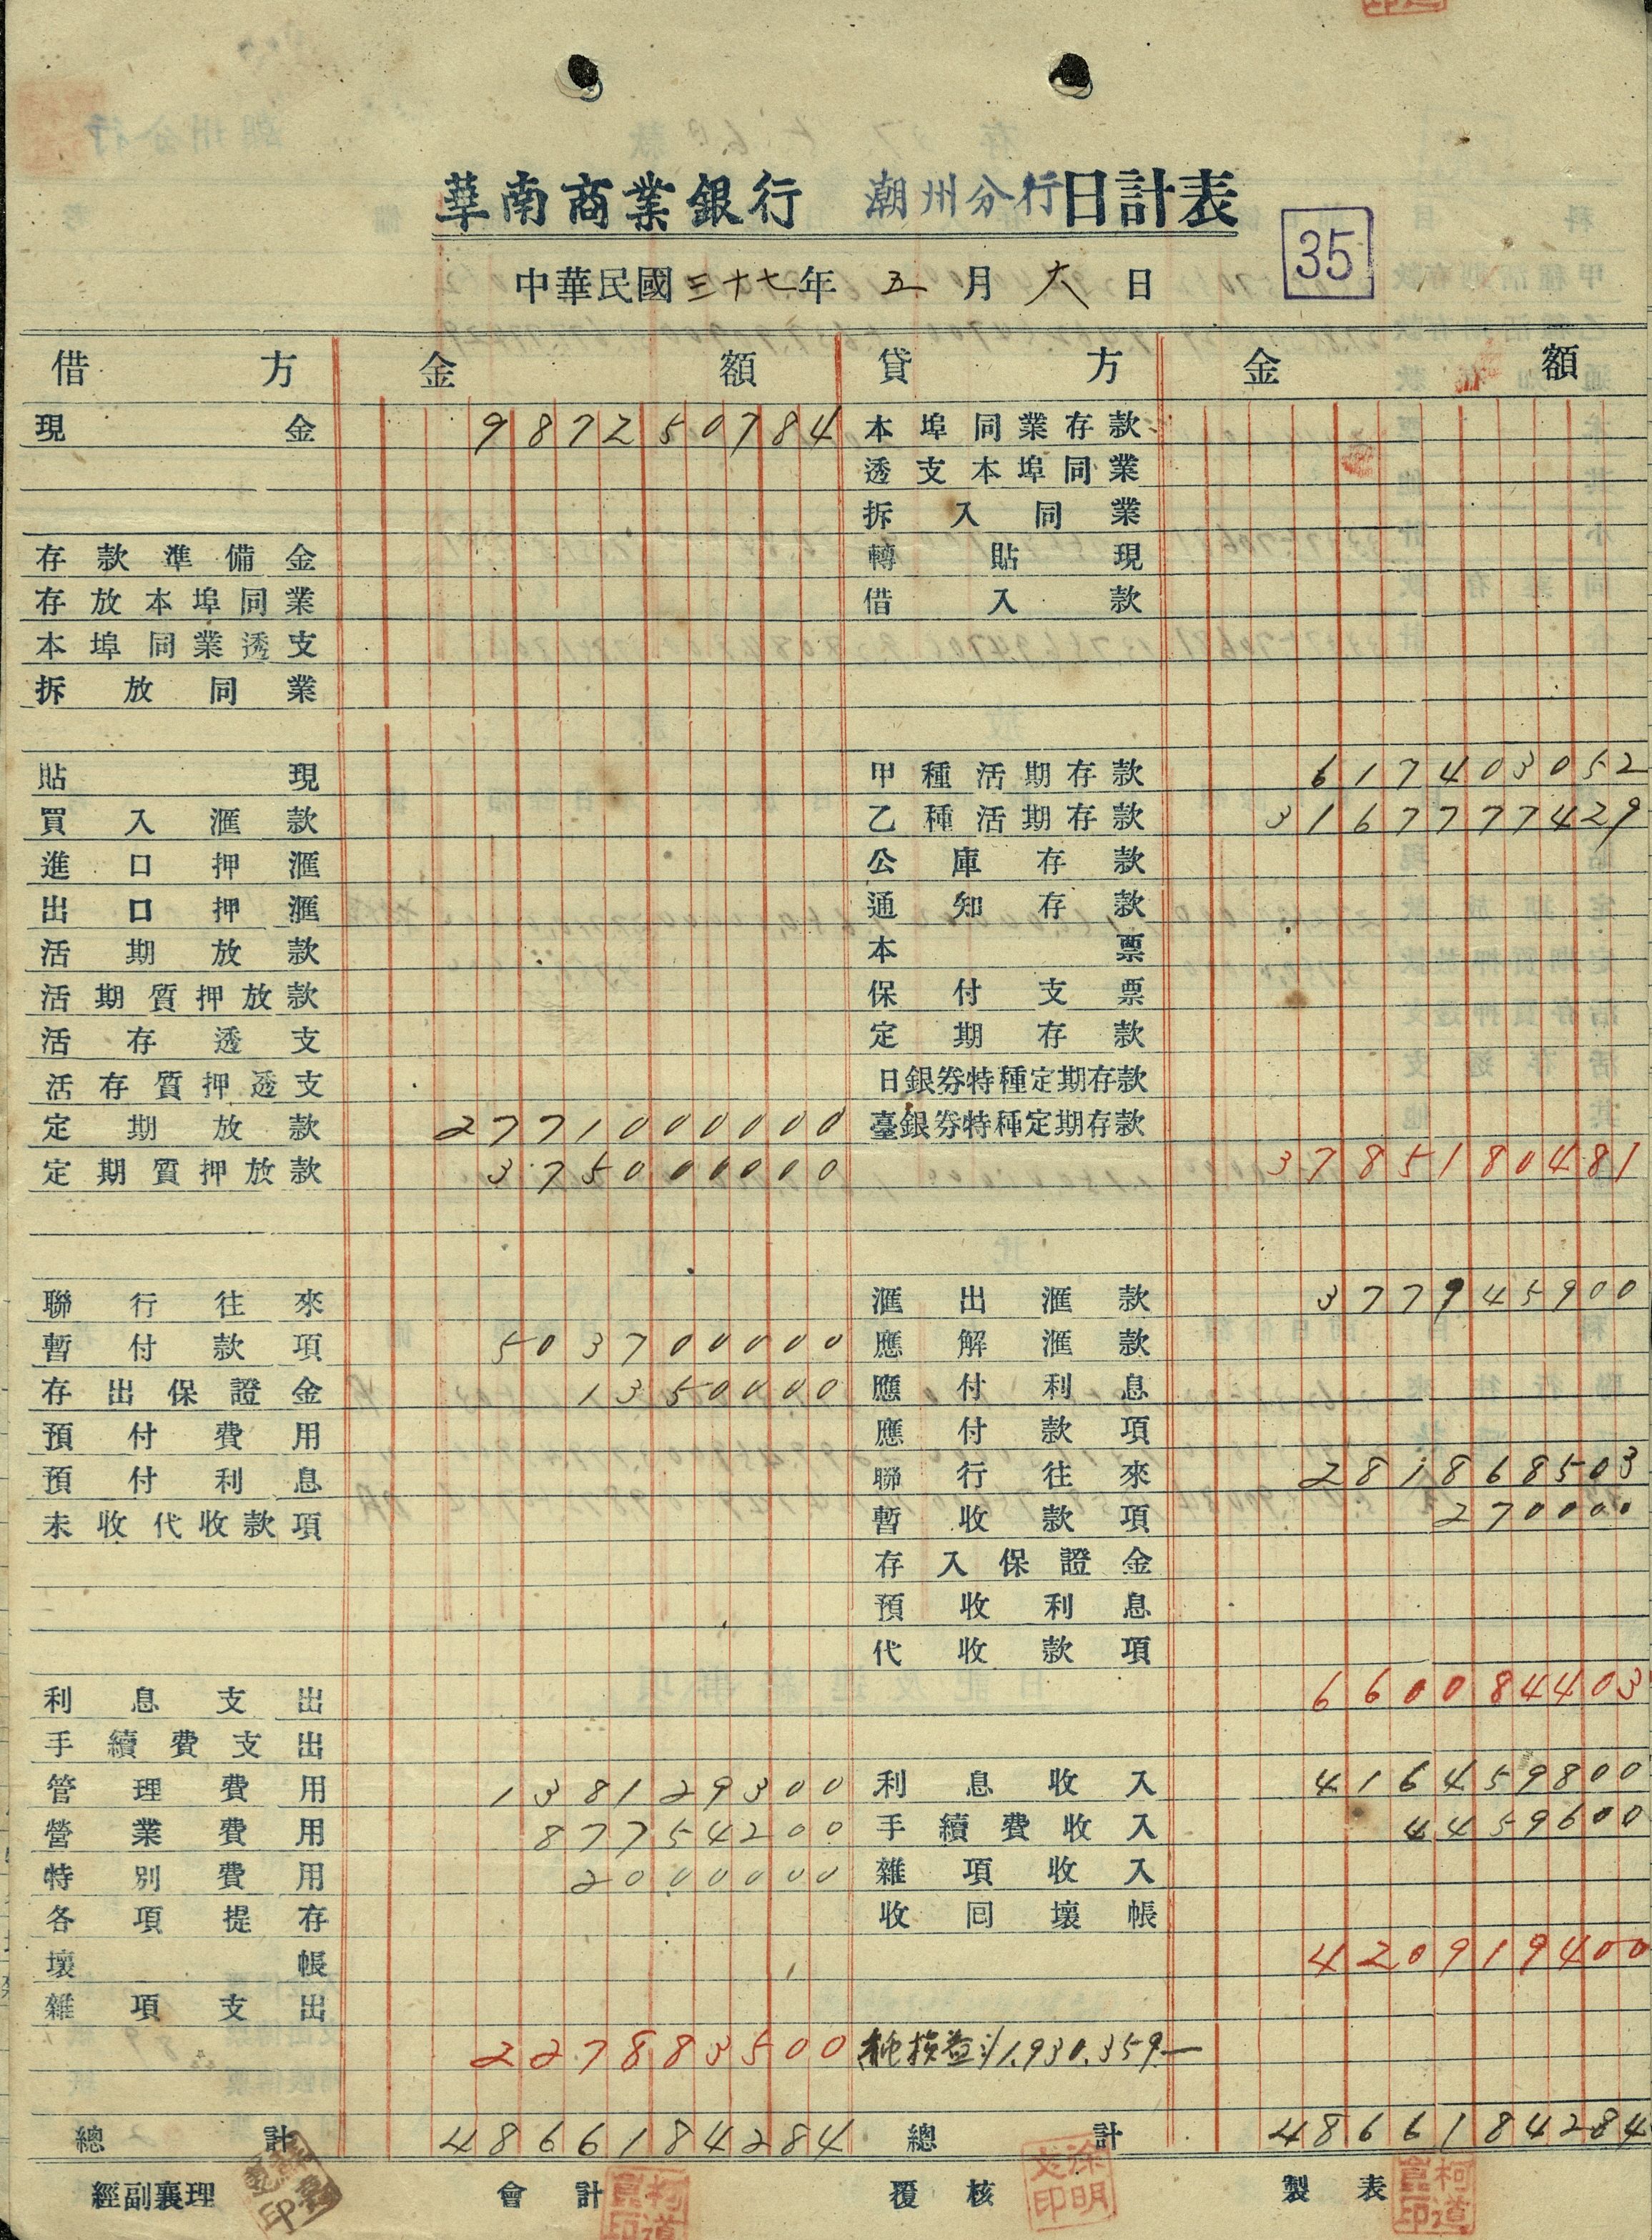 華南商業銀行 潮州分行日計表
35
中華民國三十七年五月六日
借方 金額 貸方 金額
現金 987250784 本埠同業存款
透支本埠同業
拆入同業
存款準備金 轉貼現
存放本埠同業 借入款
本埠同業透支
拆放同業
貼現 甲種活期存款 617403052
買入滙款 乙種活期存款 3167777429
進口押滙 公庫存款
出口押滙 通知存款
活期放款 本票
活期質押放款 保付支票
活存透支 定期存款
活存質押透支 日銀券特種定期存款
定期放款 2771000000 臺銀券特種定期存款
定期質押放款 375000000 3785180481
聯行往來 滙出滙款 377945900
暫付款項 503700000 應解滙款
存出保證金 1350000 應付利息
預付費用 應付款項
預付利息 聯行往來 281868503
未收代收款項 暫收款項 270000
存入保證金
預收利息
代收款項
利息支出 660084403
手續費支出
管理費用 138129300 利息收入 416459800
營業費用 87754200 手續費收入 4459600
特別費用 2000000 雜項收入
各項提存 收回壞帳
壞帳 420919400
雜項支出
227883500 純損益計 1.930.359.—
總計 4866184284 總計 4866184284
經副襄理 會計 覆核 徐明文印 製表